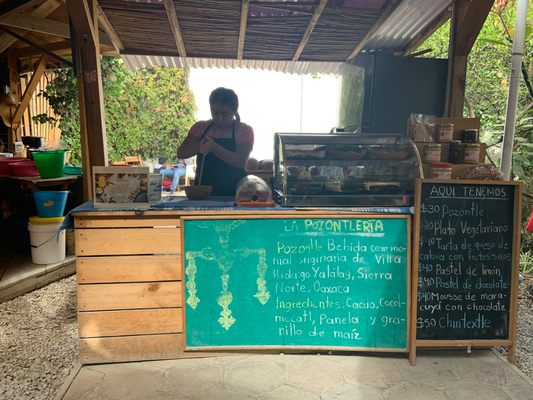 LA POZONTLERÍA
Pozontle Bebida ceremo-
nial originaria de Villa
Hidalgo Yalálag, Sierra
Norte, Oaxaca
Ingredientes: Cacao, Cocol-
mecatl, Panela y gra-
nillo de maíz
AQUI TENEMOS
$30 Pozontle
Plato Vegetariano
Tarta de queso de
cabra con frutos secos
Pastel de limón
Pastel de chocolate
Mousse de mara-
cuyá con chocolate
$50 Chintextle